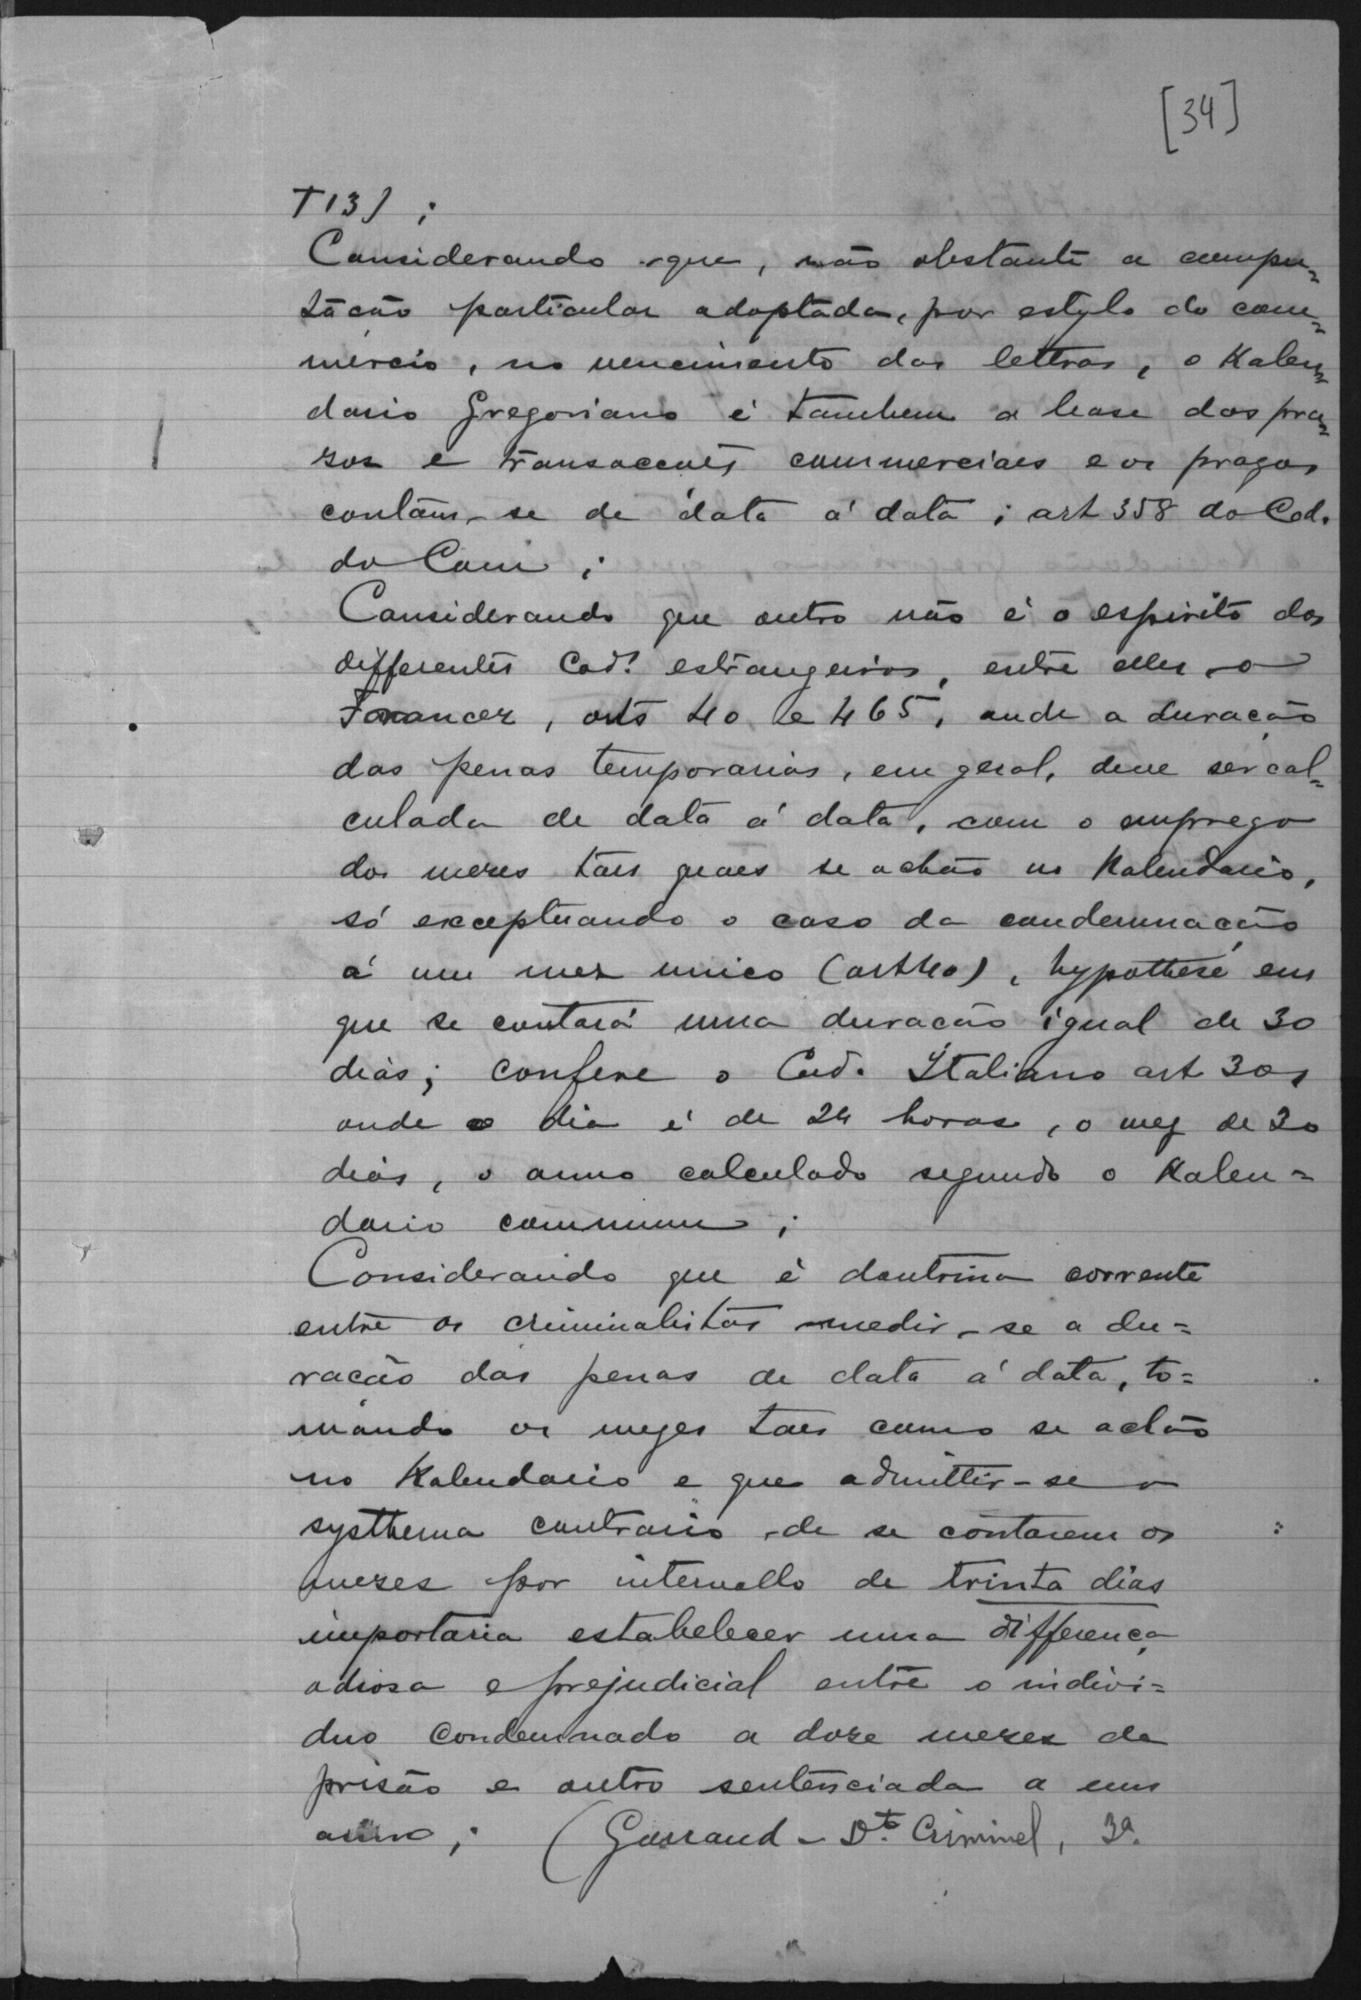 [34]
T13) ;
Considerando que, não obstante a compu=
tação particular adoptada, por estylo do com=
mercio, no vencimento das lettras, o Kalen=
dario Gregoriano é tambem a base dos pra=
sos e transacções commerciaes e os prazos
contam-se de data á data ; art 358 do Cod.
do Com ;
Considerando que outro não é o espirito dos
differentes Cod.s estrangeiros, entre elles o
Francez, arts 40 e 465, onde a duração
das penas temporarias, em geral, deve ser cal=
culada de data á data, com o emprego
dos mezes taes quaes se achão no Kalendario,
só exceptuando o caso da condemnação
á um mez unico (art 40), hypothese em
que se contará uma duração igual de 30
dias; confere o Cod. Italiano art 30,
onde o dia é de 24 horas, o mez de 30
dias, o anno calculado segundo o Kalen=
dario commum ;
Considerando que é doutrina corrente
entre os criminalistas medir-se a du=
ração das penas de data á data, to=
mando os mezes taes como se achão
no Kalendario e que admittir-se o
systhema contrario de se contarem os
mezes por intervallo de trinta dias
importaria estabelecer uma differença
odiosa e prejudicial entre o indivi=
duo condemnado a doze mezes de
prisão e outro sentenciada a um
anno ; (Garraud - Dto Criminel, 3a.